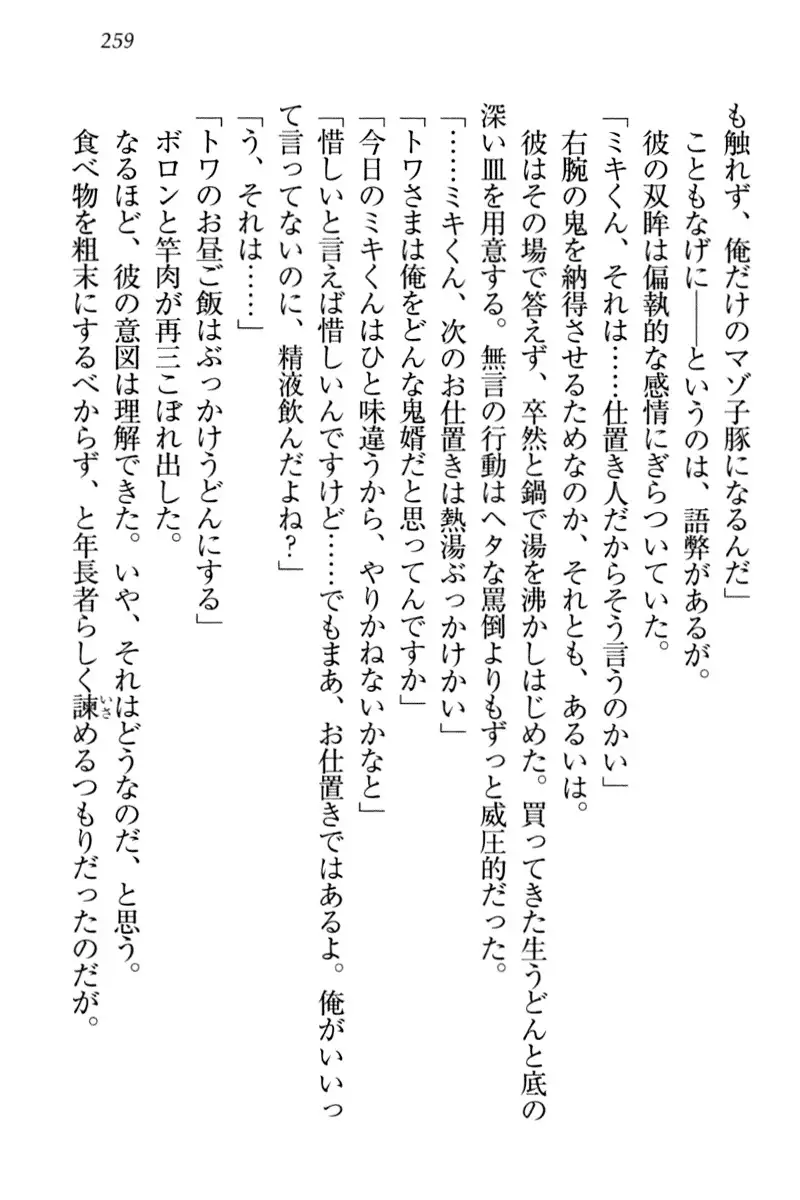 259
も触れず、俺だけのマゾ子豚になるんだ」
こともなげに――というのは、語弊があるが。
彼の双眸は偏執的な感情にぎらついていた。
「ミキくん、それは……仕置き人だからそう言うのかい」
右腕の鬼を納得させるためなのか、それとも、あるいは。
彼はその場で答えず、卒然と鍋で湯を沸かしはじめた。買ってきた生うどんと底の
深い皿を用意する。無言の行動はヘタな罵倒よりもずっと威圧的だった。
「……ミキくん、次のお仕置きは熱湯ぶっかけかい」
「トワさまは俺をどんな鬼婿だと思ってんですか」
「今日のミキくんはひと味違うから、やりかねないかなと」
「惜しいと言えば惜しいんですけど……でもまあ、お仕置きではあるよ。俺がいいっ
て言ってないのに、精液飲んだよね？」
「う、それは……」
「トワのお昼ご飯はぶっかけうどんにする」
ボロンと竿肉が再三こぼれ出した。
なるほど、彼の意図は理解できた。いや、それはどうなのだ、と思う。
食べ物を粗末にするべからず、と年長者らしく諫いさめるつもりだったのだが。